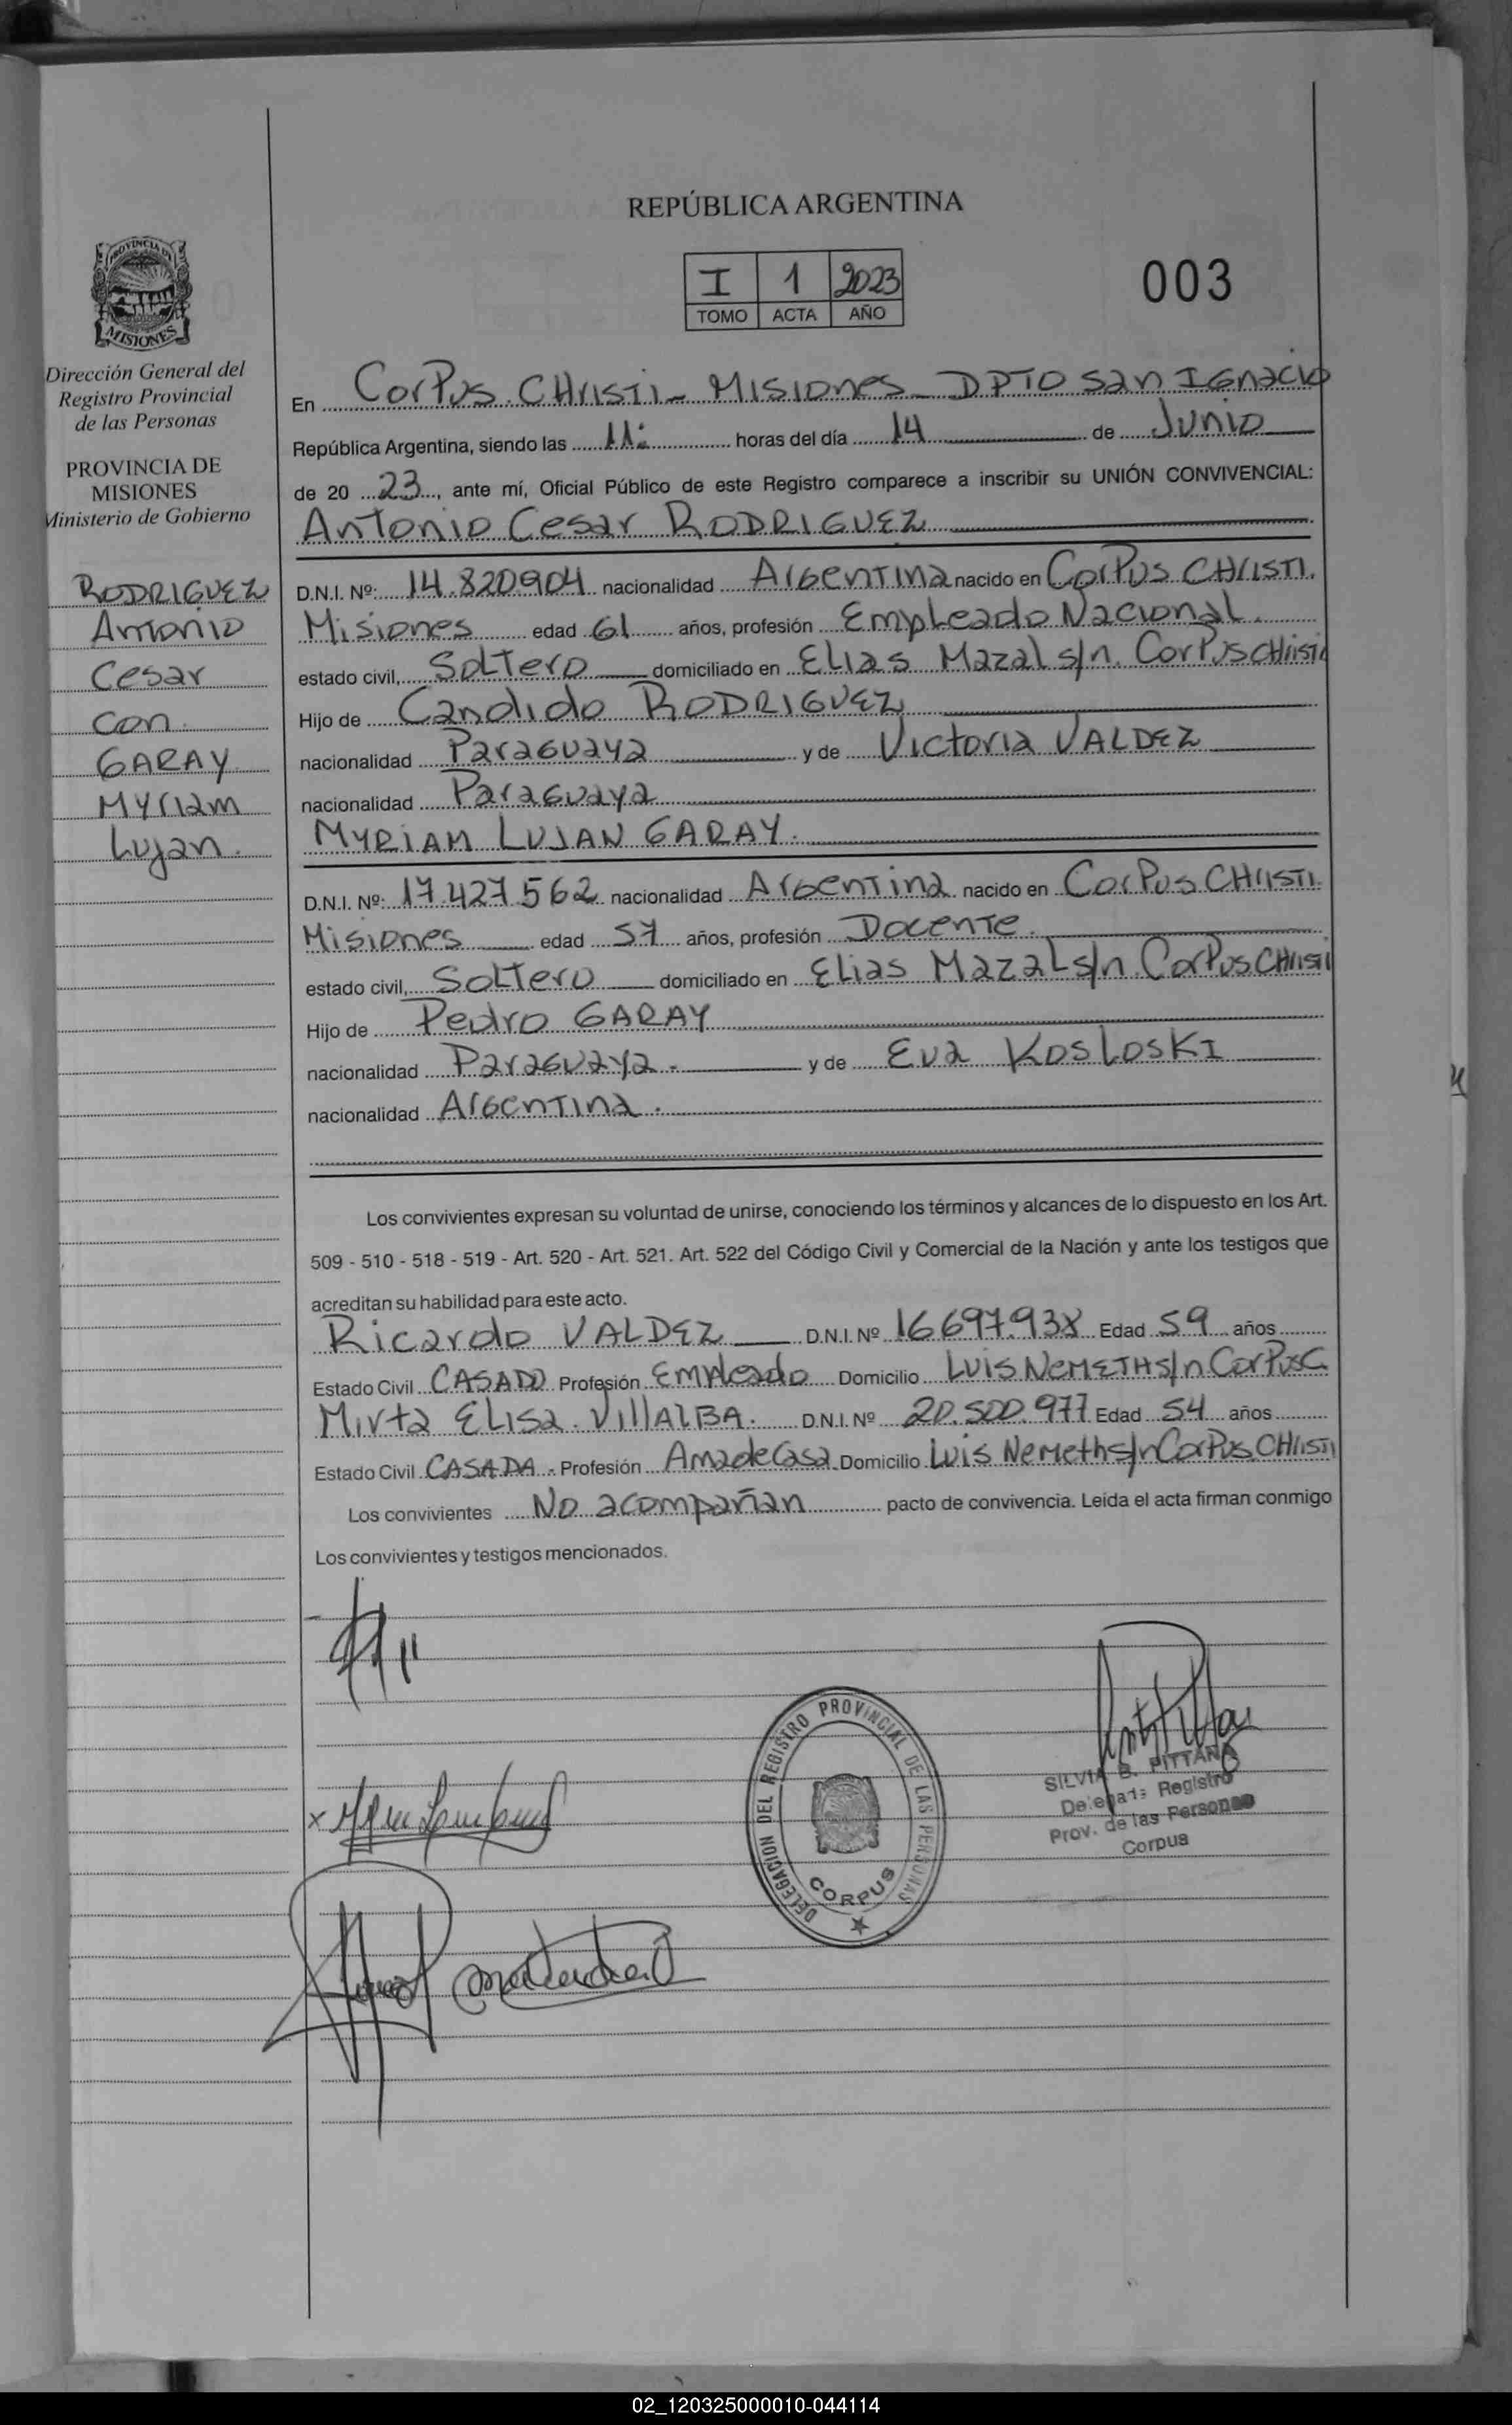 REPÚBLICA ARGENTINA
I 1 2023
TOMO ACTA AÑO
003
PROVINCIA DE
MISIONES
Dirección General del
Registro Provincial
de las Personas
PROVINCIA DE
MISIONES
Ministerio de Gobierno
RODRIGUEZ
Antonio
Cesar
con
GARAY
Myriam
Lujan.
En Corpus Christi - Misiones - DPTO San Ignacio
República Argentina, siendo las 11: horas del día 14 de Junio
de 20 23, ante mí, Oficial Público de este Registro comparece a inscribir su UNIÓN CONVIVENCIAL:
Antonio Cesar RODRIGUEZ
D.N.I. Nº: 14.820.904 nacionalidad Argentina nacido en Corpus CHristi.
Misiones edad 61 años, profesión Empleado Nacional.
estado civil, Soltero domiciliado en Elias Mazal s/n. Corpus CHristi
Hijo de Candido RODRIGUEZ
nacionalidad Paraguaya y de Victoria VALDEZ
nacionalidad Paraguaya
MYRIAM LUJAN GARAY.
D.N.I. Nº: 17.427.562 nacionalidad Argentina nacido en Corpus CHristi
Misiones edad 57 años, profesión Docente.
estado civil, Soltero domiciliado en Elias Mazal s/n. Corpus CHristi
Hijo de Pedro GARAY
nacionalidad Paraguaya. y de Eva KosLosKI
nacionalidad Argentina.
Los convivientes expresan su voluntad de unirse, conociendo los términos y alcances de lo dispuesto en los Art.
509 - 510 - 518 - 519 - Art. 520 - Art. 521. Art. 522 del Código Civil y Comercial de la Nación y ante los testigos que
acreditan su habilidad para este acto.
Ricardo VALDEZ D.N.I. Nº 16.697.938 Edad 59 años
Estado Civil CASADO Profesión Empleado Domicilio Luis NEMETH s/n Corpus C.
Mirta Elisa VillALBA. D.N.I. Nº 20.500.977 Edad 54 años
Estado Civil CASADA - Profesión Ama de Casa Domicilio Luis Nemeth s/n Corpus CHristi
Los convivientes No acompañan pacto de convivencia. Leída el acta firman conmigo
Los convivientes y testigos mencionados.
DELEGACION DEL REGISTRO PROVINCIAL DE LAS PERSONAS
CORPUS
SILVIA B. PITTANA
Delegada Registro
Prov. de las Personas
Corpus
02_120325000010-044114